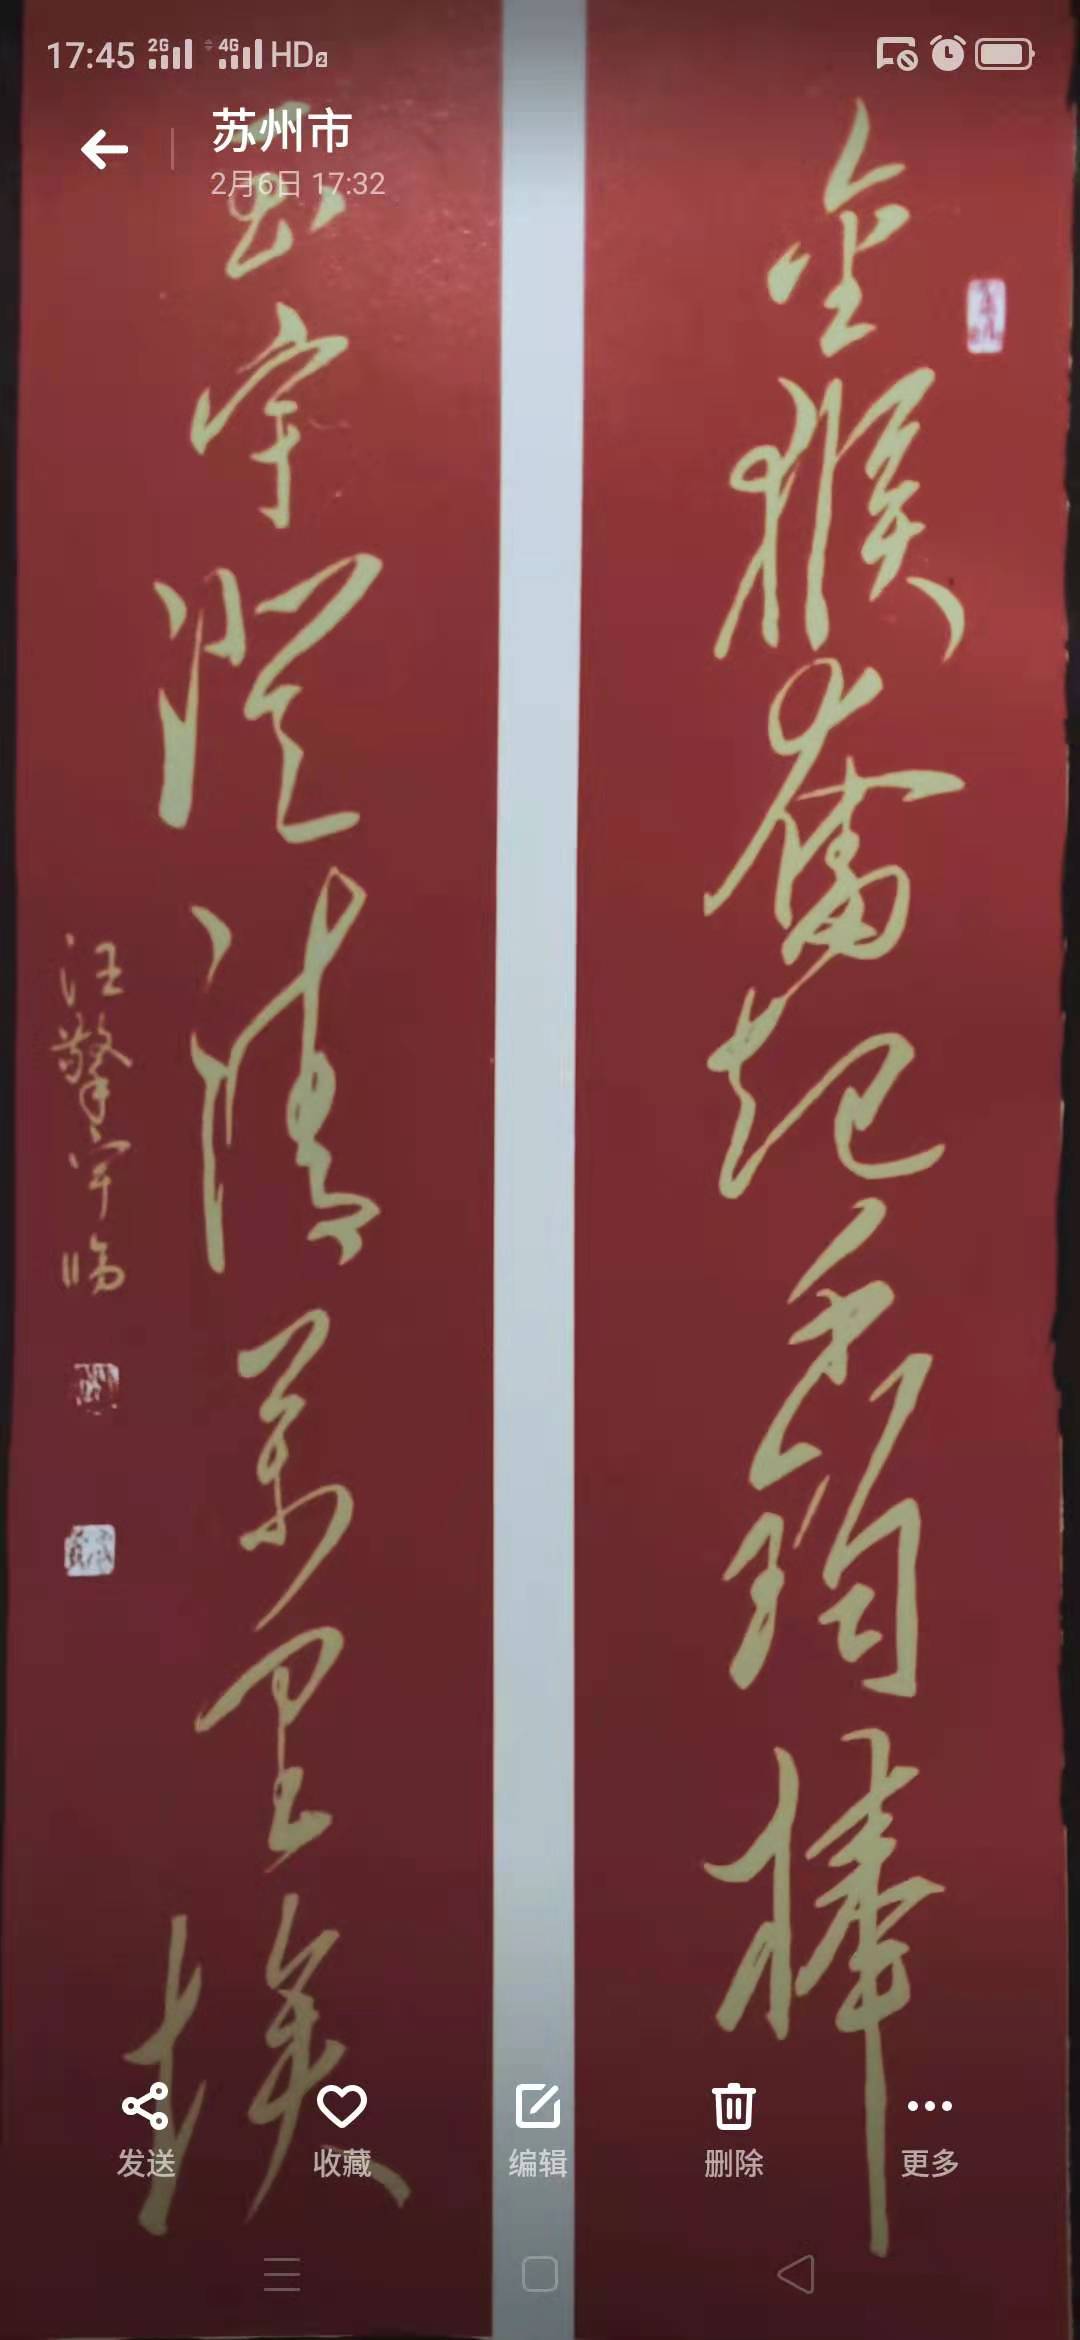 17:45 2G 4G HD2
苏州市
2月6日 17:32
金猴奋起千钧棒
玉宇澄清万里埃
汪擎宇临
发送 收藏 编辑 删除 更多